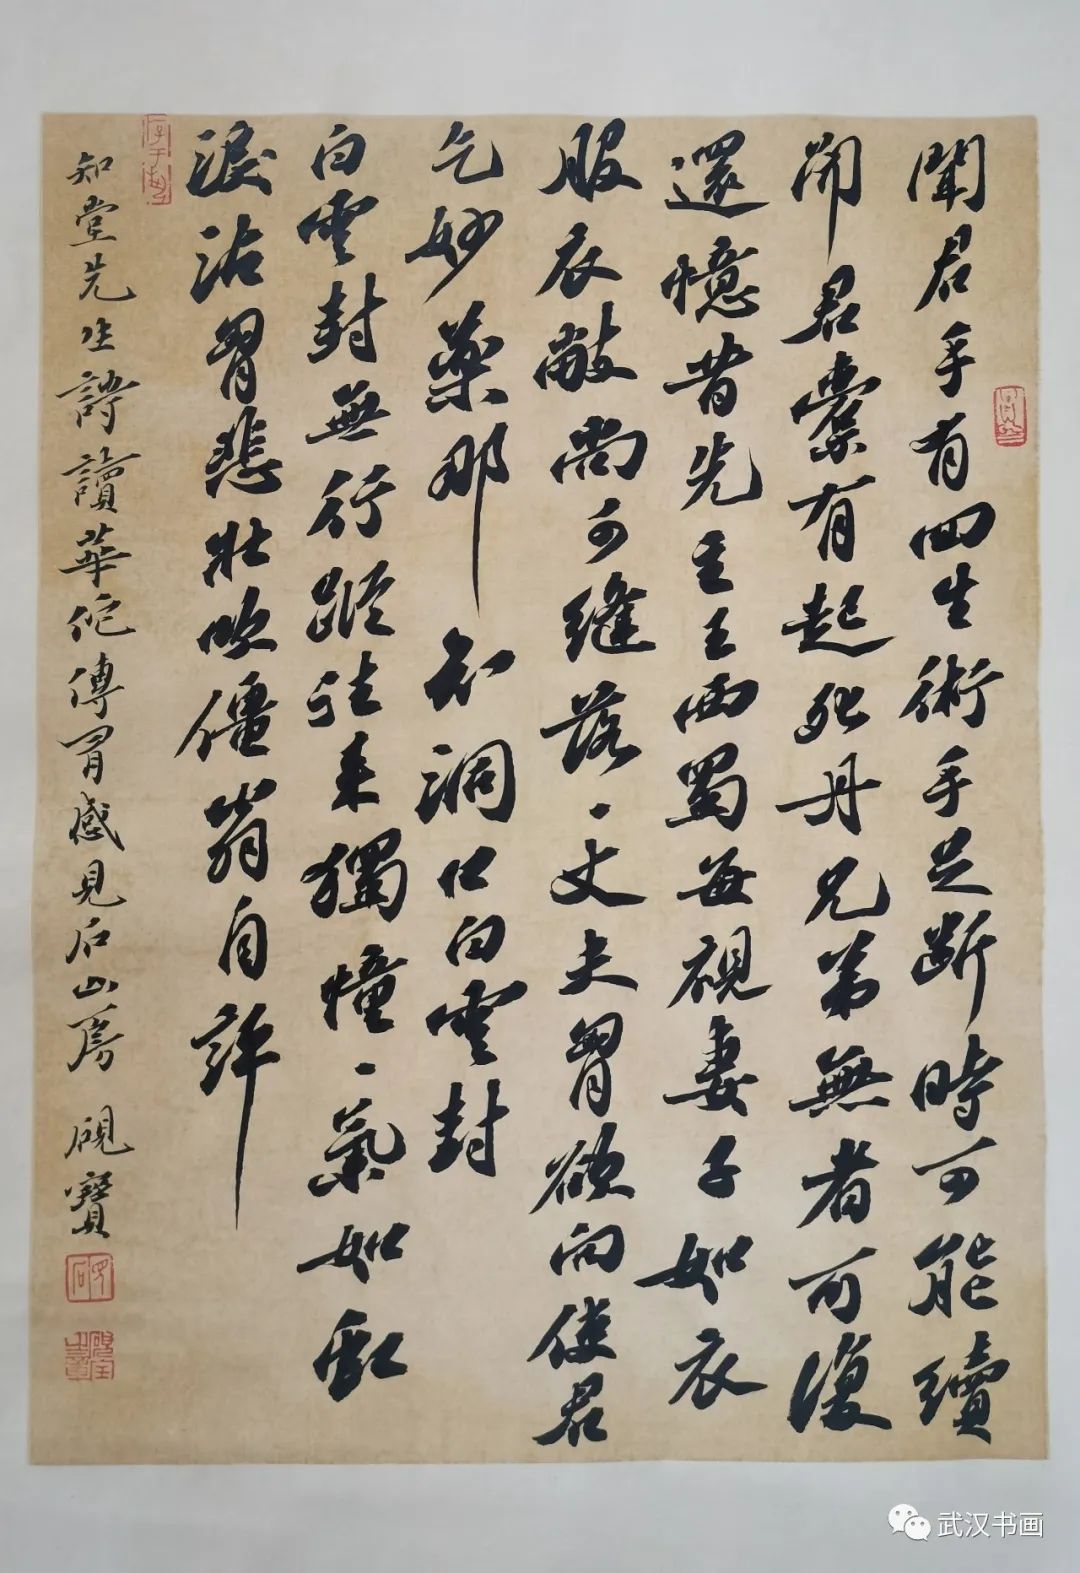 聞君手有回生術手足斷時可能續
聞君囊有起死丹兄弟無者可復
還憶昔先主王西蜀每視妻子如衣
服衣敝尚可縫落丶丈夫胃欲向使君
乞妙藥那知洞口白雲封
白雲封無行蹤往來獨憧丶氣如虹
淚沾胃悲壯吹僵翁自許
知堂先生詩讀華佗傳有感見石山房 硯寶
武汉书画